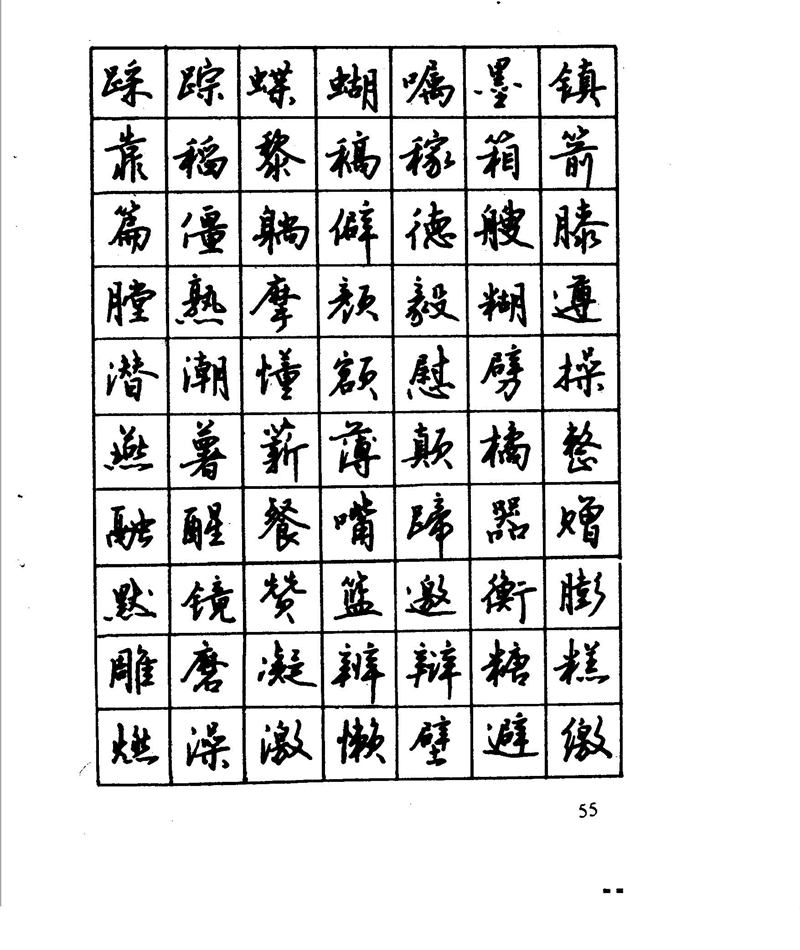 踩踪蝶蝴嘱墨镇
靠稻黎稿稼箱箭
篇僵躺僻德艘膝
膛熟摩颜毅糊遵
潜潮懂额慰劈操
燕薯薪薄颠橘整
融醒餐嘴蹄器赠
默镜赞篮邀衡膨
雕磨凝辨辩糖糕
燃澡激懒壁避缴
55